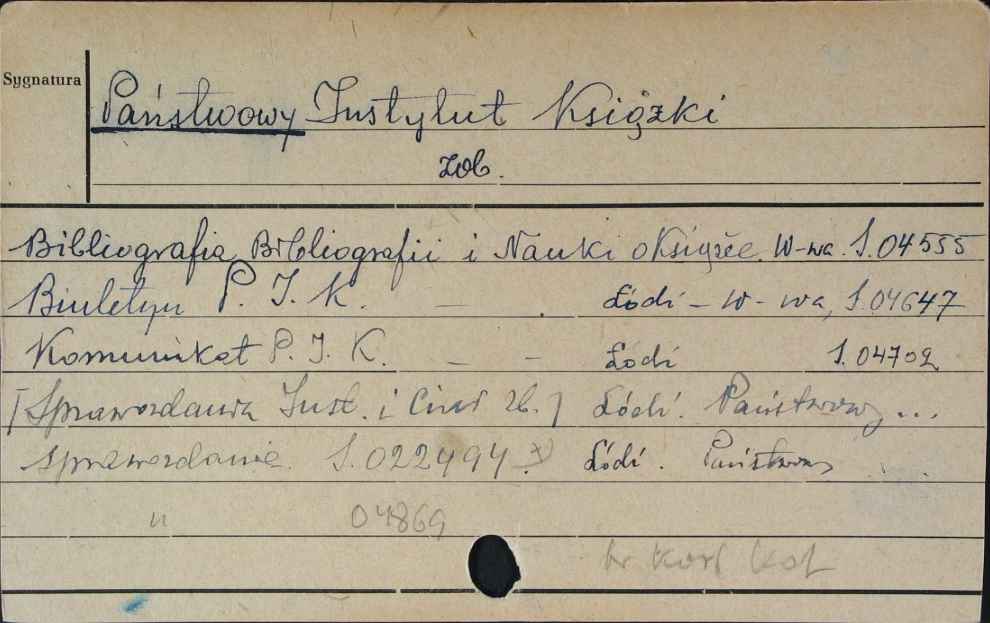 Sygnatura
Państwowy Instytut Książki
zob.
Bibliografia Bibliografii i Nauki o Książce. W-wa. S.04555
Biuletyn P. I. K. — Łódź - W-wa, S.04647
Komunikat P. I. K. — - Łódź S.04702
[Sprawozdania Inst. i ] Łódź. Państwowy ...
Sprawozdanie. S.022494 x) Łódź. Państwowy . .
" 04869
br kart kat